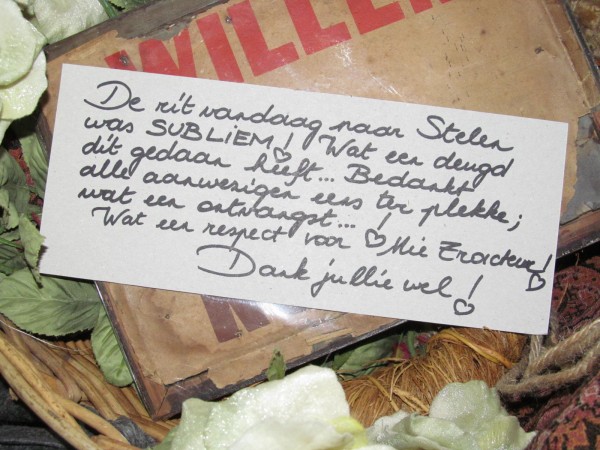 WILLE
De rit vandaag naar Stelen
was SUBLIEM! Wat een deugd
dit gedaan heeft... Bedankt
alle aanwezigen eens ter plekke;
wat een ontvangst...!
Wat een respect voor ♡ Mie Tracteur!
Dank jullie wel!